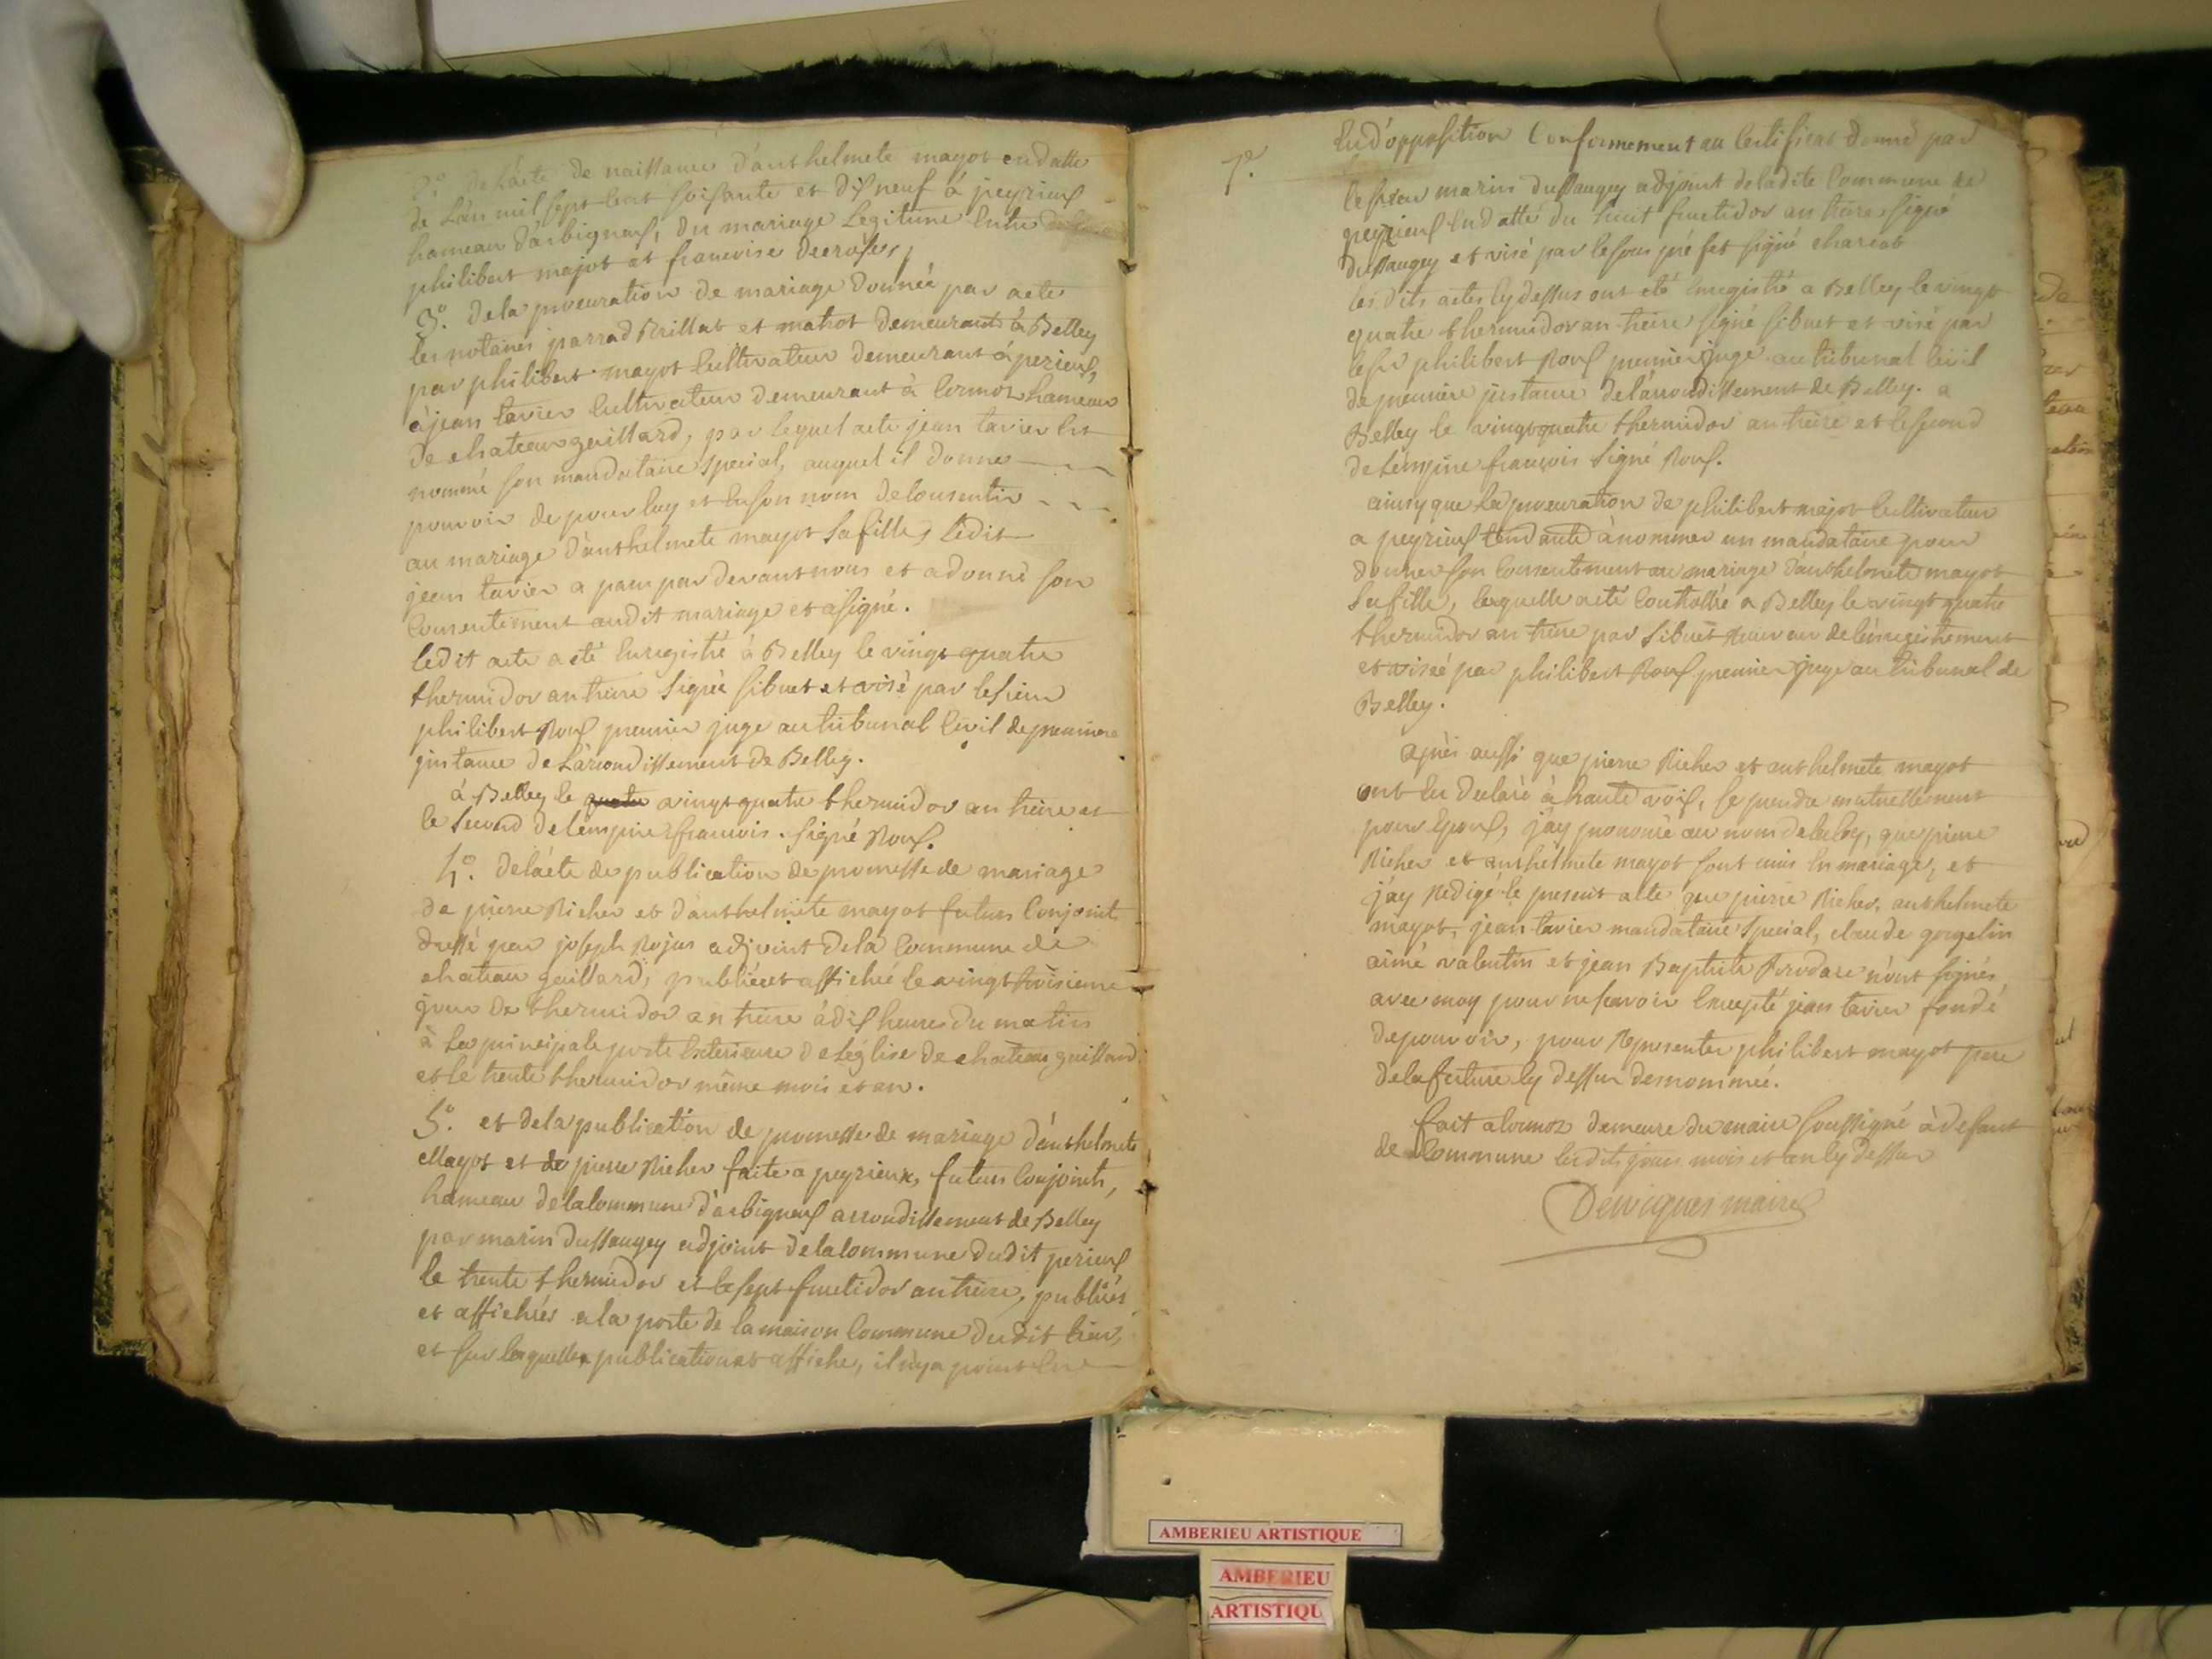 2.° de l'acte de naissance d'anthelmete mayot en datte
de l'an mil sept cent soisante et dis neuf à peyrieuf
hameau d'arbigneuf, du mariage legitime entre
philibert majot et francoise decroses,
3.° de la procuration de mariage donnée par acte
les notaires parrad Brillat et matrot demeurants à Belley
par philibert mayot cultivateur demeurant à perieuf,
à jean tavier cultivateur demeurant à Cormoz hameau
de chateaugaillard, par lequel acte jean tavier est
nommé son mandataire special, auquel il donne
pouvoir de pour luy et en son nom de consentir
au mariage d'anthelmete mayot sa fille, ledit
jean tavier a paru par devant nous et a donné son
consentement audit mariage et a signé.
ledit acte a eté enregistré à Belley le vingt quatre
thermidor an treize signée sibuet et visé par le sieur
philibert Rouf premier juge au tribunal civil de premiere
jnstance de l'arrondissement de Belley.
à Belley le quatre vingt quatre thermidor an treize et
le second de l'empire francois. signé Rouf.
4.° de l'acte de publication de promesse de mariage
de pierre Richer et d'anthelmete mayot futurs conjoint
dressé par joseph Rojus adjoint de la commune de
chateau gaillard, publiée et affichée le vingt troisieme
jour de thermidor an treize à dis heures du matin
à la principale porte exterieure de l'église de chateaugaillard
et le trente thermidor même mois et an.
5.° et de la publication de promesse de mariage d'anthelmete
Mayot et de pierre Richer faite a peyrieux, futurs conjoints,
hameau de la commune d'arbigneuf arrondissement de Belley
par marin dussaugey adjoint de la commune dudit perieuf
le trente thermidor et le sept fructidor an treize, publiés
et affichées a la porte de la maison commune dudit lieu,
et sur lesquelles publication et affiche, il n'y a point eue
7.e
eu d'opposition conformement au certificat donné par
le sieur marin dussaugey adjoint de ladite commune de
peyrieuf en datte du huit fructidor an treize, signé
dussaugey et visé par le sous préfet signé charcot
les dits actes cy dessus ont eté enregistré a Belley le vingt
quatre thermidor an treize signé sibuet et visé par
le sr philibert Rouf premier juge au tribunal civil
de premiere jnstance de l'arrondissement de Belley. a
Belley le vingt quatre thermidor an treize et le second
de l'empire francois signé Rouf.
ainsy que la procuration de philibert majot cultivateur
a peyrieuf tendante à nommer un mandataire pour
donner son consentement au mariage d'anthelmete mayot
sa fille, laquelle a eté controllée a Belley le vingt quatre
thermidor an treize par sibuet receveur de l'enregistrement
et visée par philibert Rouf premier juge au tribunal de
Belley.
après aussi que pierre Richer et anthelmete mayot
ont eu declaré à haute voix, se prendre mutuellement
pour epouf, j'ay prononcé au nom de la loy, que pierre
Richer et anthelmete mayot sont unis en mariage, et
j'ay redigé le present acte que pierre Richer, anthelmete
mayot, jean tavier mandataire special, claude gogelin
aimé valentin et jean Baptiste Brodare n'ont signés
avec moy pour ne scavoir excepté jean tavier fondé
de pouvoir, pour representer philibert mayot pere
de la future cy dessus denommée.
fait a Cormoz demeure du maire soussigné à defaut
de commune lesdits jour mois et an cy dessus
Dervieques maire
AMBERIEU ARTISTIQUE
AMBERIEU
ARTISTIQU